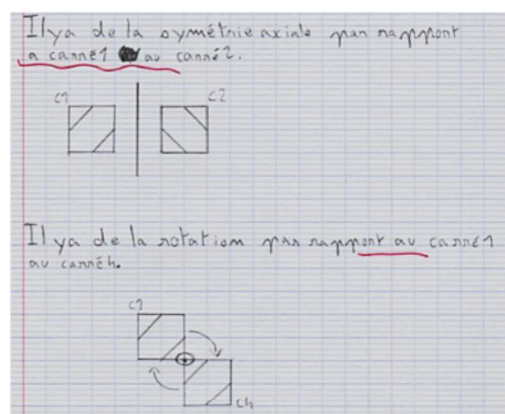 Il y a de la symétrie axiale par rapport
a carré1 au carré2.
C1
C2
Il y a de la rotation par rapport au carré1
au carré4.
C1
C4